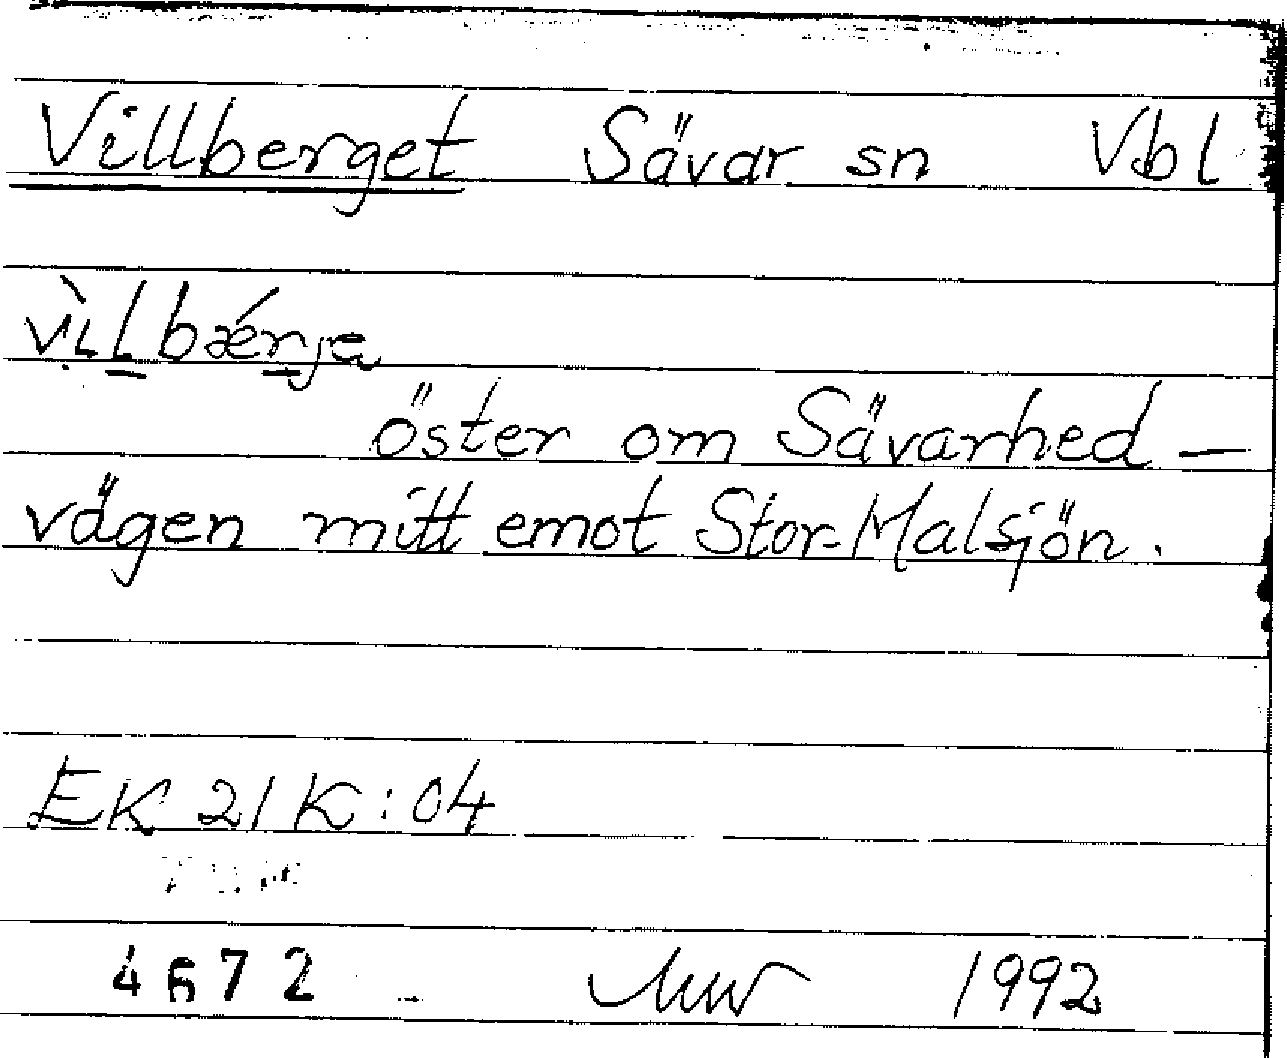 Villberget Sävar sn Vbl
vìlbǽrja
öster om Sävarhed-
vägen mitt emot Stor-Malsjön.
EK 21K:04
4672 1992